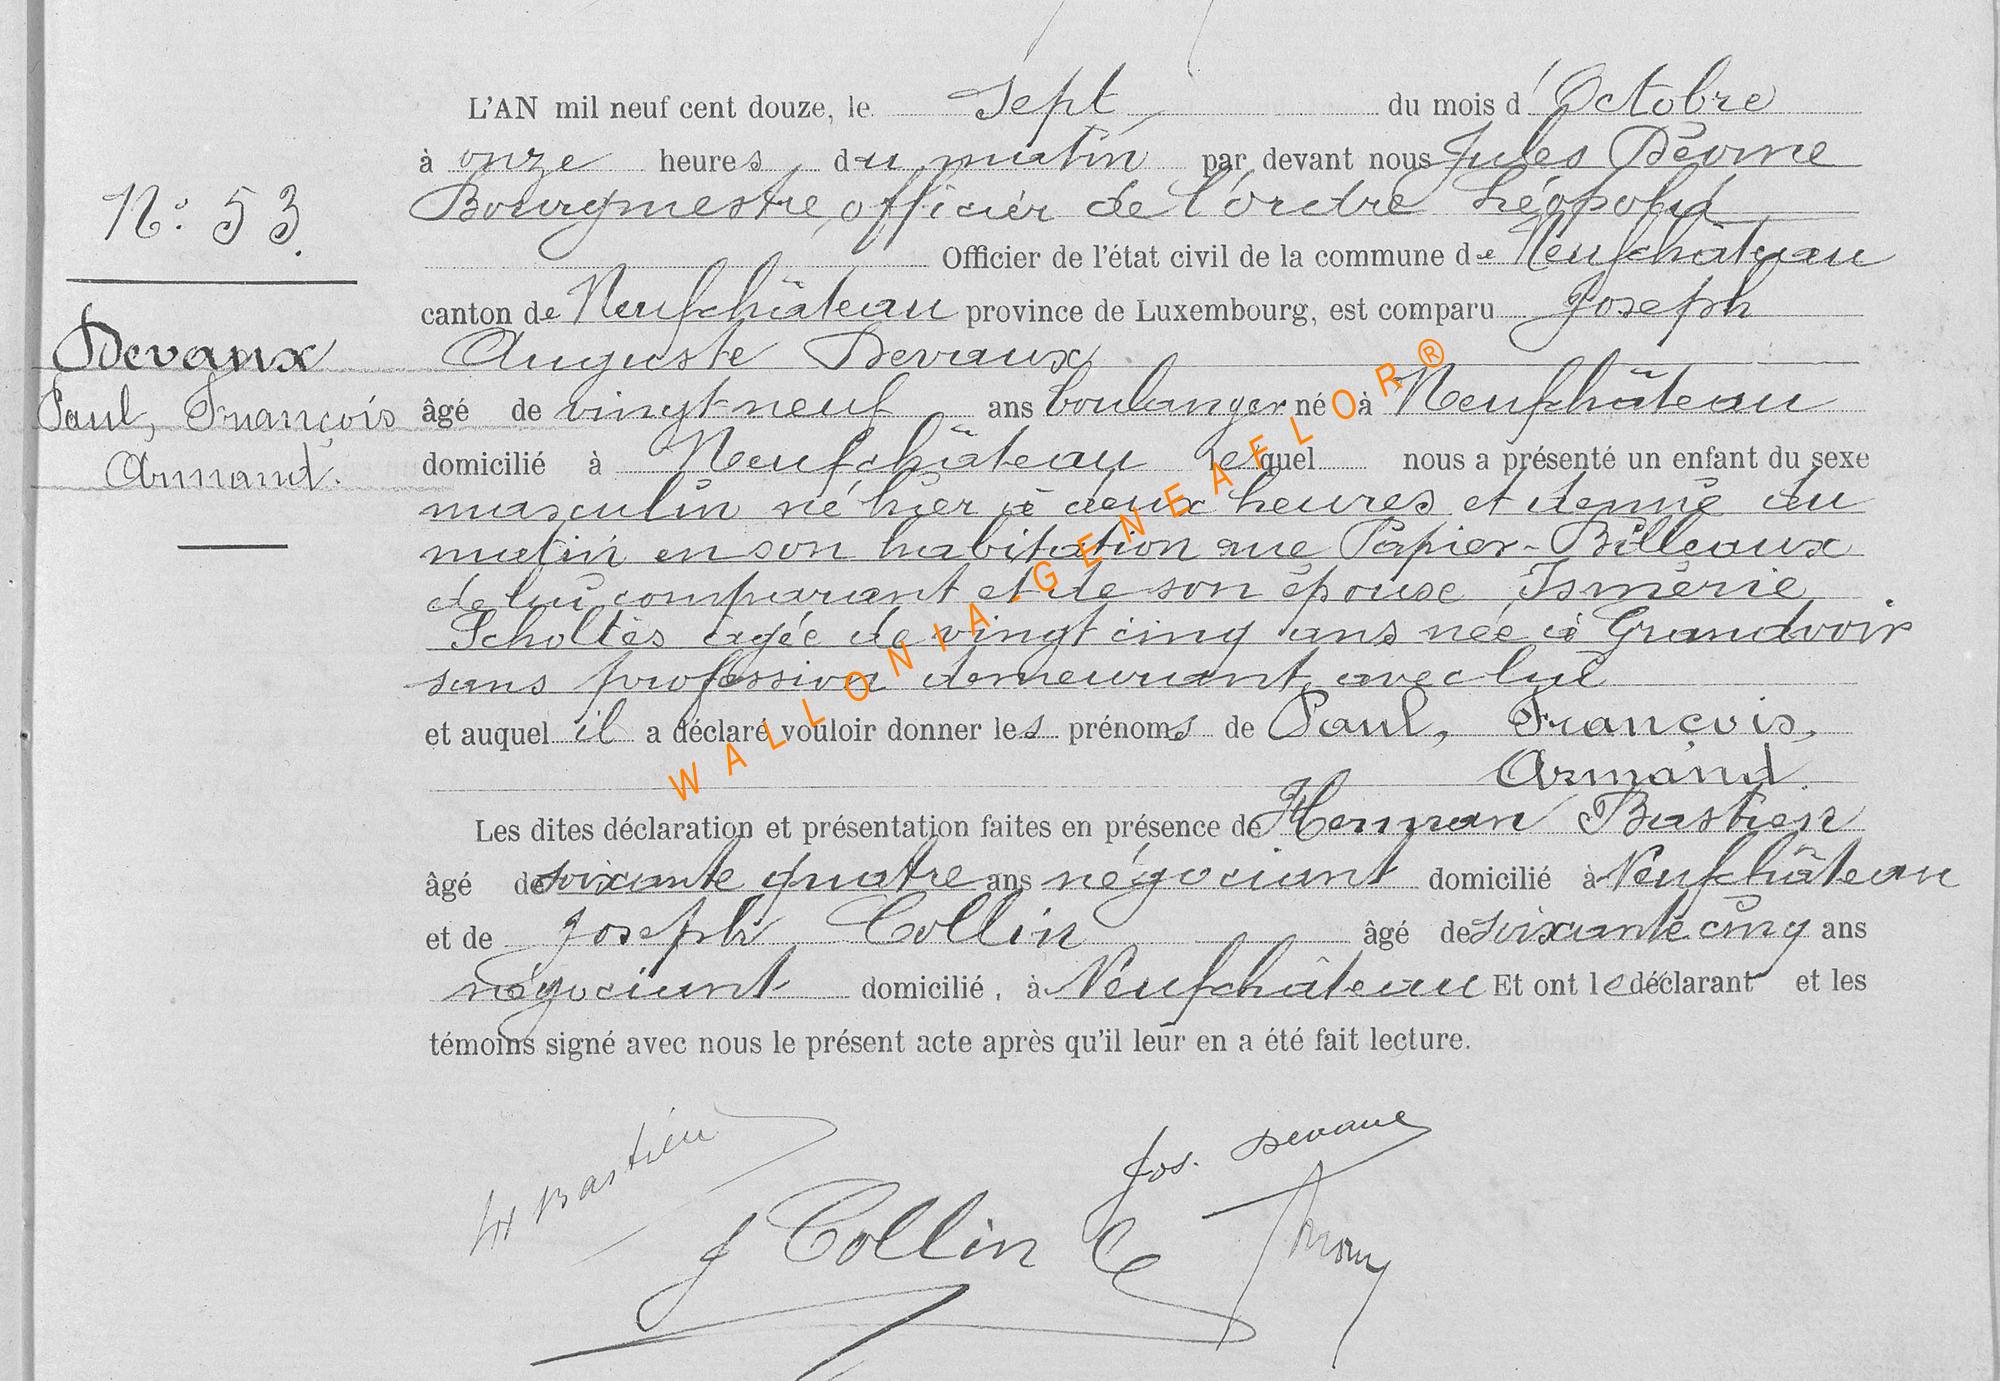 N° 53.
Devaux
Paul, François
Armand.
L'AN mil neuf cent douze, le sept du mois d'Octobre
à onze heures du matin par devant nous Jules
Bourgmestre, officier de l'ordre Léopold
Officier de l'état civil de la commune de Neufchâteau
canton de Neufchâteau province de Luxembourg, est comparu Joseph
Auguste Devaux
âgé de vingt-neuf ans boulanger né à Neufchâteau
domicilié à Neufchâteau lequel nous a présenté un enfant du sexe
masculin né hier à deux heures et demie du
matin en son habitation rue Papier-Billeaux
de lui comparant et de son épouse Ismérie
Scholtès âgée de vingt cinq ans née à Grandvoir
sans profession demeurant avec lui
et auquel il a déclaré vouloir donner les prénoms de Paul, François,
Armand.
Les dites déclaration et présentation faites en présence de Herman Bastien
âgé de soixante quatre ans négociant domicilié à Neufchâteau
et de Joseph Collin âgé de soixante cinq ans
négociant domicilié, à Neufchâteau Et ont le déclarant et les
témoins signé avec nous le présent acte après qu'il leur en a été fait lecture.
H Bastien
Jos. Devaux
J Collin
WALLONIA-GENEAFLOR®